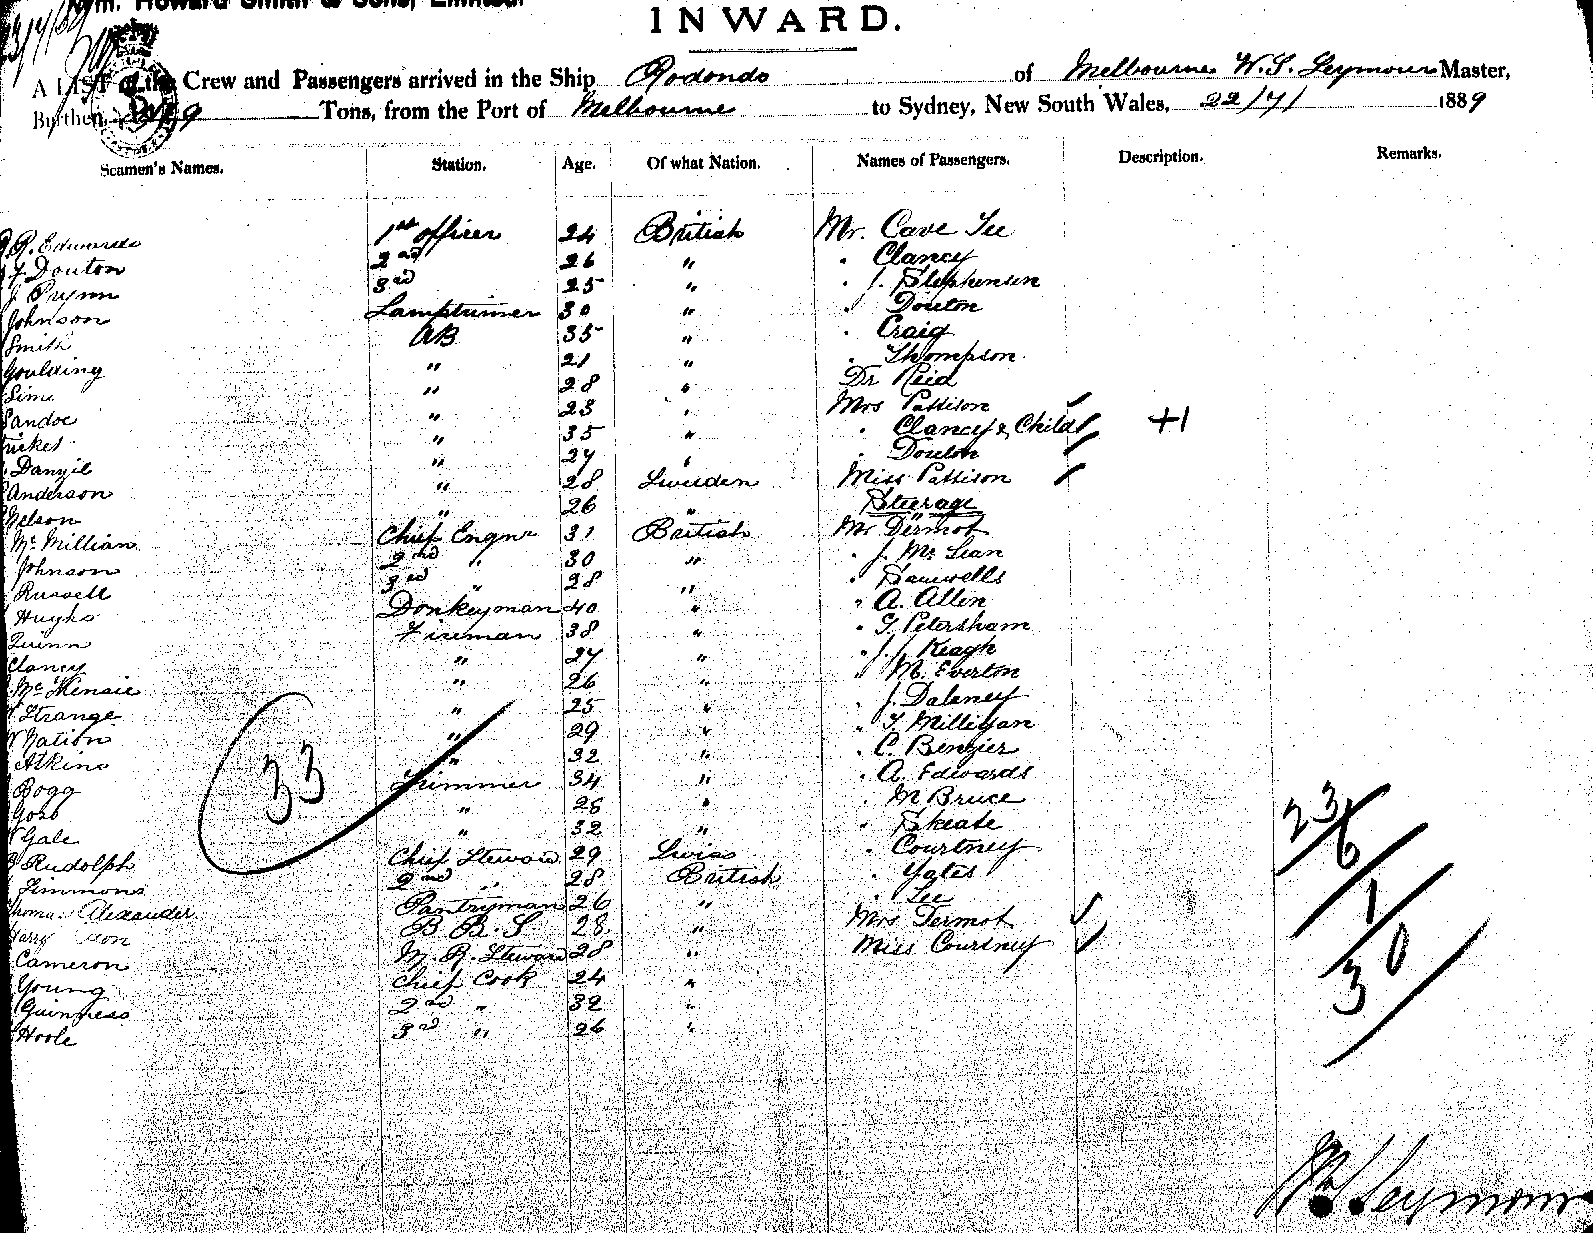 Wm. Howard Smith & Sons, Limited.
INWARD.
A LIST of the Crew and Passengers arrived in the Ship Rodondo of Melbourne W. S. Seymour Master,
Burthen Tons, from the Port of Melbourne to Sydney, New South Wales, 22/7/ 1889
Seamen's Names. Station. Age. Of what Nation. Names of Passengers. Description. Remarks.
R. Edwards 1st officer 24 British Mr. Cave Tee
F Douton 2nd 26 " " Clancy
J Prynn 3rd 25 " " J. Stephensen
Johnson Lamptrimer 30 " Douton
Smith AB 35 " " Craig
Goulding " 21 " " Thompson
Sim " 28 " Dr Reid
Sandoe " 23 " Mrs Pattison
" 35 " " Clancy & Child +1
Danzil " 27 " " Douton
Anderson " 28 Sweden Miss Pattison
Nelson " 26 " Steerage
Mc Millian Chief Engnr 31 British Mr Dermot
Johnson 2nd " 30 " " J. Mc Lean
Russell 3rd " 28 " " Samwells
Hughs Donkeyman 40 " " A. Allen
Quinn Fireman 38 " " G Petersham
Clancy " 27 " " J. Keagh
Mc Kensie " 26 " " M. Everton
Strange " 25 " " J. Daleney
Nation " 29 " " T. Milligan
Atkins " 32 " " C. Benzier
Bogg Trimmer 34 " " A. Edwards
Goss " 28 " " M Bruce
Gale " 32 " " Skeate
Rudolph Chief Steward 29 Swiss " Courtney
Simmons 2nd " 28 British " Yates
Thomas Alexander Pantryman 26 " " Lee
Harry B. B. S 28 " Mrs Dermot
Cameron M. R. Steward 28 " Miss Courtney
Young Chief Cook 24 "
Guinness 2nd " 32 "
Hoole 3rd " 26 "
33
23
6
1
30
W S Seymour